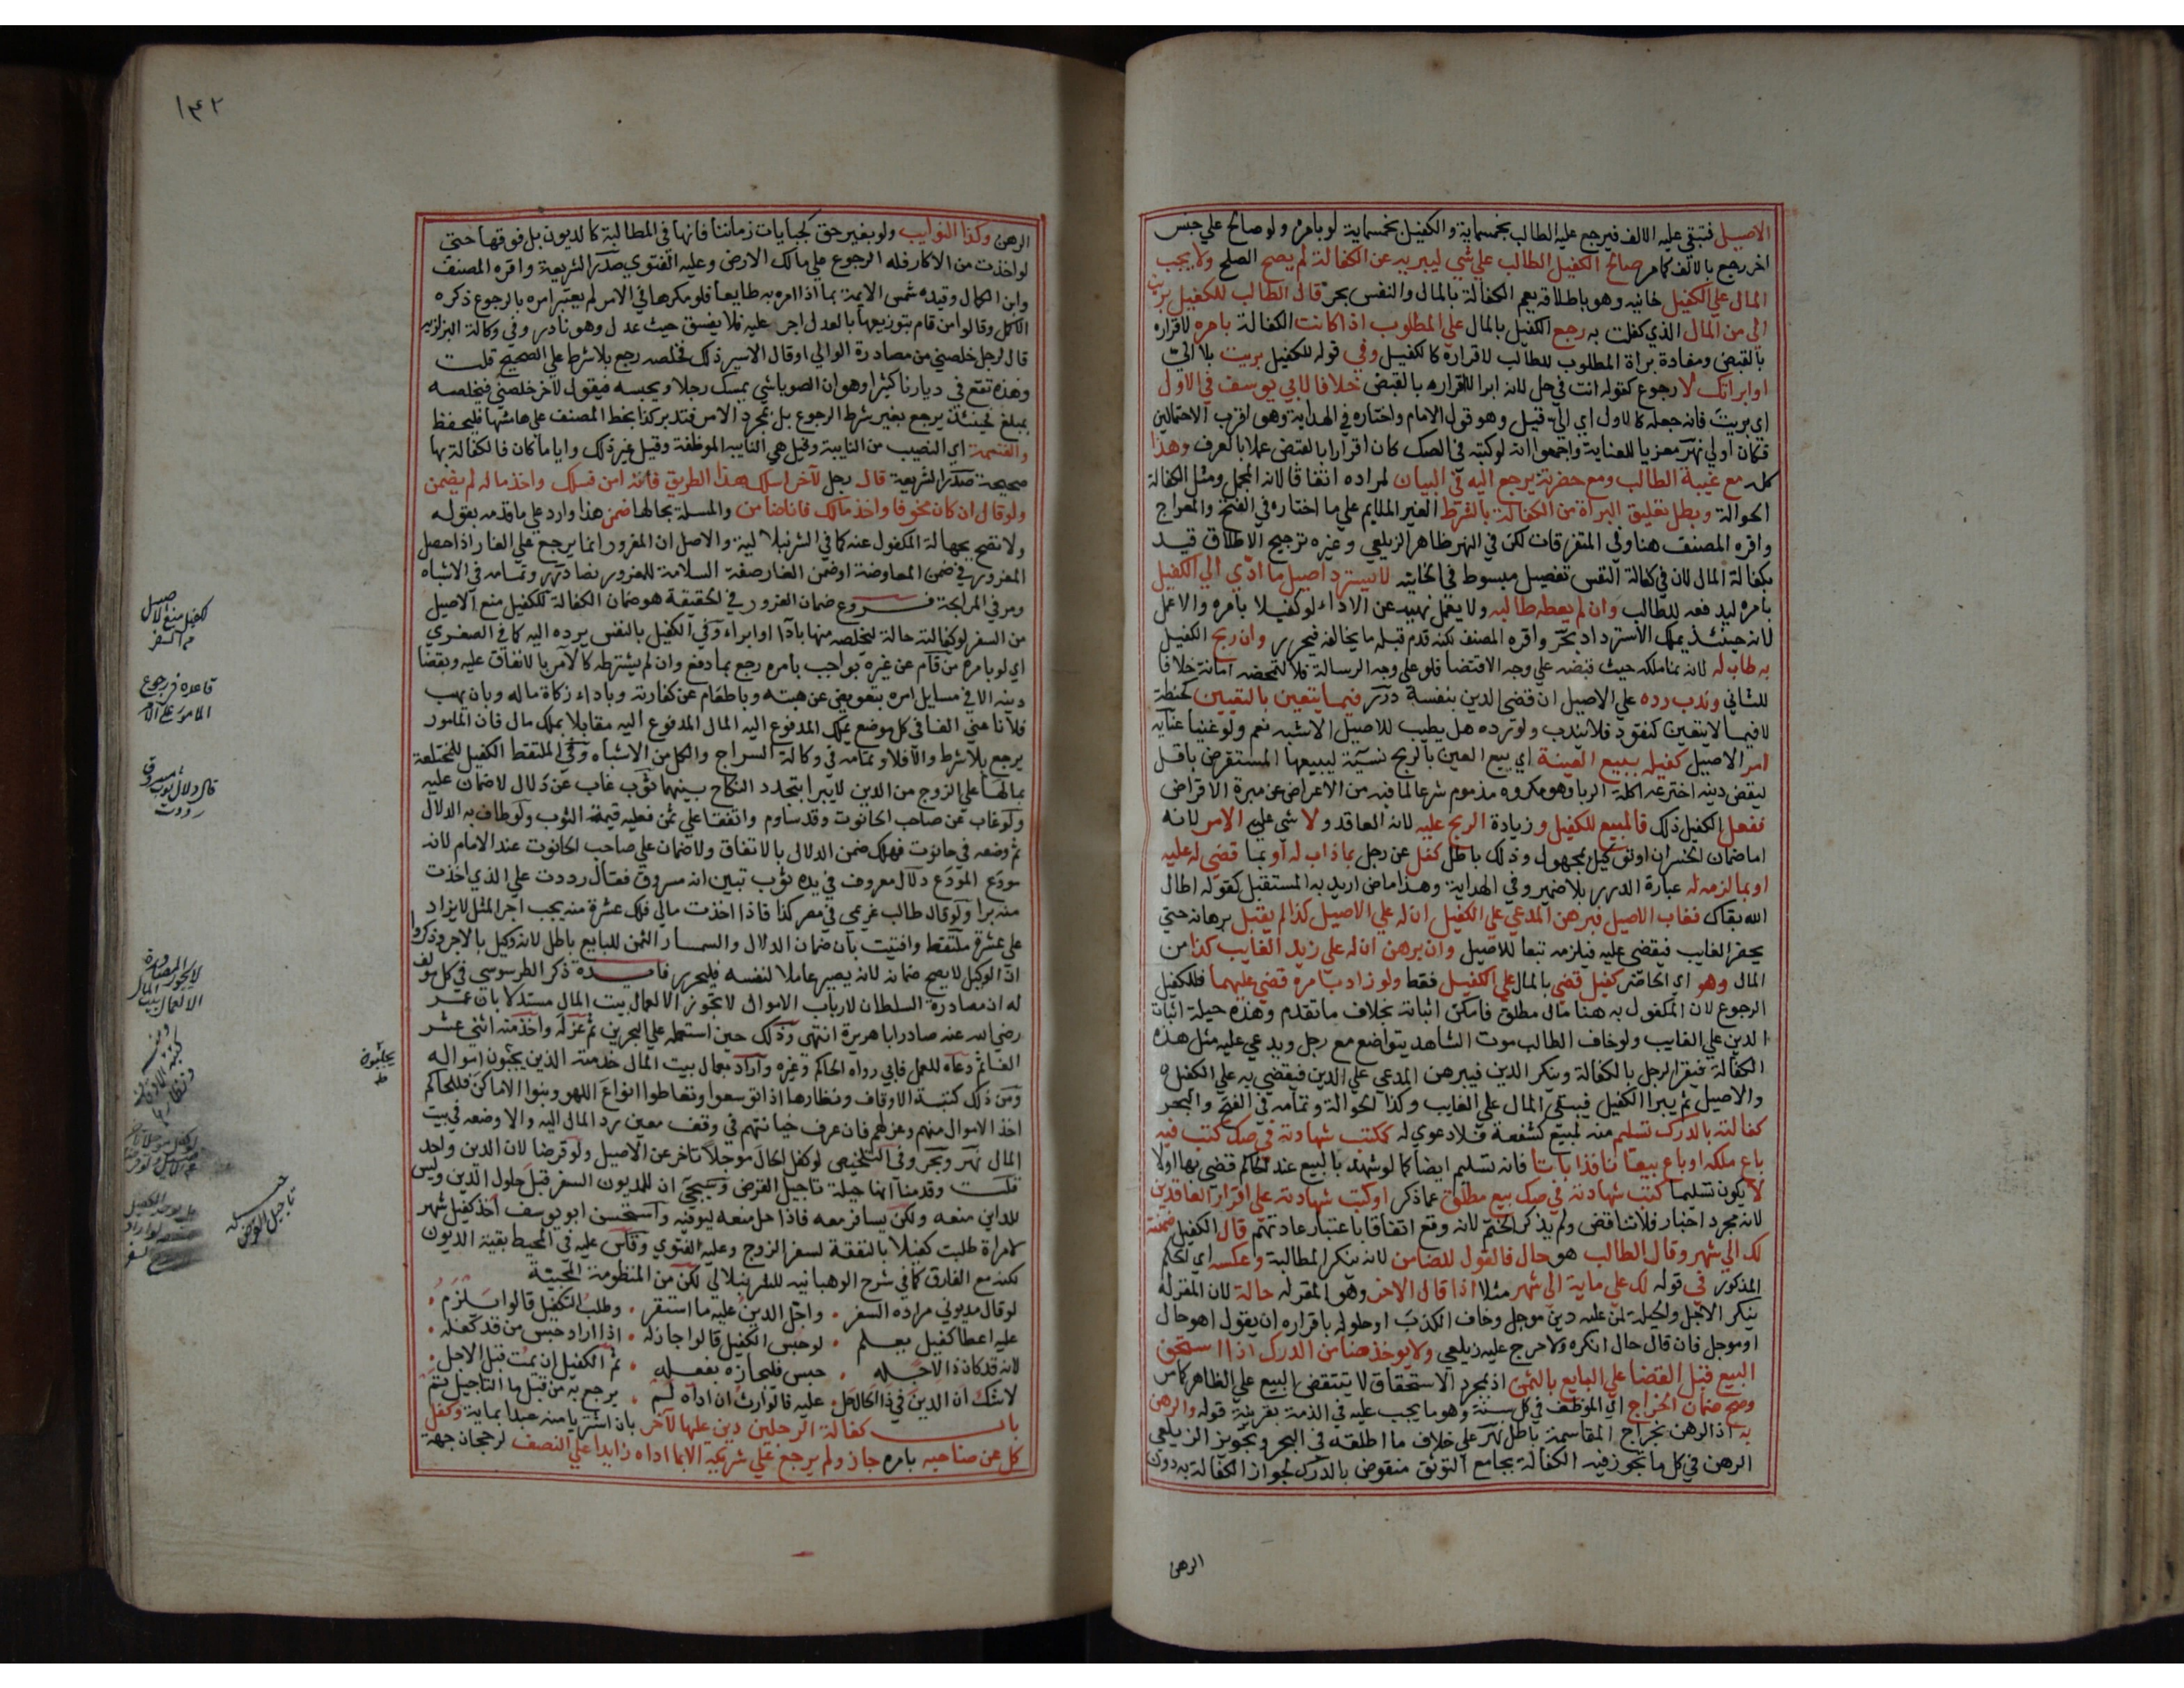 الاصيل فتبقي عليه الالف فيرجع عليه الطالب بخمسماية والكفيل بخمسماية لو بامره ولو صالح علي جنس
اخر رجع بالالف كما مر صالح الكفيل الطالب علي شي ليبريه عن الكفالة لم يصح الصلح ولا يجب
المال علي الكفيل خانيه وهو باطلاقه يعم الكفالة بالمال والنفس بحر قال الطالب للكفيل بريت
الي من المال الذي كفلت به رجع الكفيل بالمال علي المطلوب اذا كانت الكفالة بامره لاقراره
بالقبض ومفادة براة المطلوب للطالب لاقراره كالكفيل وفي قوله للكفيل بريت بلا الي
او ابراتك لا رجوع كقوله انت في حل لانه ابرا لا اقراره بالقبض خلافا لابي يوسف في الاول
اي بريت فانه جعله كالاول اي الي قيل وهو قول الامام واختاره في الهداية وهو اقرب الاحتمالين
فكان اولي نهر معزيا للعناية واجمعوا انه لو كتبه في الصك كان اقرارا بالقبض عملا بالعرف وهذا
كله مع غيبة الطالب ومع حضرته يرجع اليه في البيان لمراده اتفاقا لانه المجمل ومثل الكفالة
الحوالة وبطل تعليق البراة من الكفالة بالشرط الغير الملايم علي ما اختاره في الفتح والمعراج
واقره المصنف هنا وفي المتفرقات لكن في النهر ظاهر الزيلعي وغيره ترجيح الاطلاق قيد
بكفالة المال لان في كفالة النفس تفصيل مبسوط في الخانيه لا يسترد اصيل ما ادي الي الكفيل
بامره ليدفعه للطالب وان لم يعطه طالبه ولا يعمل نهيه عن الاداء لو كفيلا بامره والا عمل
لانه حينئذ يملك الاسترداد بحر واقره المصنف لكنه قدم قبله ما يخالفه فيحرر وان ربح الكفيل
به طاب له لانه نما ملكه حيث قبضه علي وجه الاقتضا فلو علي وجه الرسالة فلا لتمحضه امانة خلافا
للثاني وندب رده علي الاصيل ان قضي الدين بنفسه درر فيما يتعين بالتعيين كحنطة
لا فيما لا يتعين كنقود فلا يندب ولو رده هل يطيب للاصيل الاشبه نعم ولو غنيا عنايه
امر الاصيل كفيله ببيع العينة اي بيع العين بالربح نسية ليبيعها المستقرض باقل
ليقضي دينه اخترعه اكلة الربا وهو مكروه مذموم شرعا لما فيه من الاعراض عن مبرة الاقراض
ففعل الكفيل ذلك فالمبيع للكفيل وزيادة الربح عليه لانه العاقد ولا شي علي الامر لانه
اما ضمان الخسران او توكيل بمجهول وذلك باطل كفل عن رجل بما ذاب له او بما قضي له عليه
او بما لزمه له عبارة الدرر بلا ضمير وفي الهداية وهذا ماض اريد به المستقبل كقوله اطال
الله بقاك فغاب الاصيل فبرهن المدعي علي الكفيل ان له علي الاصيل كذا لم يقبل برهانه حتي
يحضر الغايب فيقضي عليه فيلزمه تبعا للاصيل وان برهن ان له علي زيد الغايب كذا من
المال وهو اي الحاضر كفيل قضي بالمال علي الكفيل فقط ولو زاد بامره قضي عليهما فللكفيل
الرجوع لان المكفول به هنا مال مطلق فامكن اثباته بخلاف ما تقدم وهذه حيلة اثبات
الدين علي الغايب ولو خاف الطالب موت الشاهد يتواضع مع رجل ويدعي عليه مثل هذه
الكفالة فيقر الرجل بالكفالة وينكر الدين فيبرهن المدعي علي الدين فيقضي به علي الكفيل
والاصيل ثم يبرا الكفيل فيبقي المال علي الغايب وكذا الحوالة وتمامه في الفتح والبحر
كفالته بالدرك تسليم منه لمبيع كشفعة فلا دعوي له ككتب شهادته في صك كتب فيه
باع ملكه او باع بيعا نافذا باتا فانه تسليم ايضا كما لو شهد بالبيع عند الحاكم قضي بها اولا
لا يكون تسليما كتب شهادته في صك بيع مطلق عما ذكر او كتب شهادته علي اقرار العاقدين
لانه مجرد اخبار فلا تناقض ولم يذكر الختم لانه وقع اتفاقا باعتبار عادتهم قال الكفيل ضمنته
لك الي شهر وقال الطالب هو حال فالقول للضامن لانه ينكر المطالبة وعكسه اي الحكم
المذكور في قوله لك علي ماية الي شهر مثلا اذا قال الاخر وهو المقر له حالة لان المقر له
ينكر الاجل والحيلة لمن عليه دين موجل وخاف الكذب او حلوله باقراره ان يقول اهو حال
او موجل فان قال حال انكره ولا حرج عليه زيلعي ولا يوخذ ضامن الدرك اذا استحق
المبيع قبل القضا علي البايع بالثمن اذ بمجرد الاستحقاق لا ينتقض البيع علي الظاهر كما مر
وصح ضمان الخراج اي الموظف في كل سنة وهو ما يجب عليه في الذمة بقرينة قوله والرهن
به اذ الرهن بخراج المقاسمة باطل نهر علي خلاف ما اطلقه في البحر وتجويز الزيلعي
الرهن في كل ما تجوز فيه الكفالة بجامع التوثق منقوض بالدرك لجواز الكفالة به دون
الرهن
١٤٢
الرهن وكذا النوايب ولو بغير حق كجبايات زماننا فانها في المطالبة كالديون بل فوقها حتي
لو اخذت من الاكار فله الرجوع علي مالك الارض وعليه الفتوي صدر الشريعة واقره المصنف
وابن الكمال وقيده شمس الايمة بما اذا امره به طايعا فلو مكرها في الامر لم يعتبر امره بالرجوع ذكره
الاكمل وقالوا من قام بتوزيعها بالعدل اجر عليه فلا يفسق حيث عدل وهو نادر وفي وكالة البزازيه
قال لرجل خلصني من مصادرة الوالي او قال الاسير ذلك فخلصه رجع بلا شرط علي الصحيح قلت
وهذه تقع في ديارنا كثيرا وهو ان الصوباشي يمسك رجلا ويحبسه فيقول لاخر خلصني فيخلصه
بمبلغ فحينئذ يرجع بغير شرط الرجوع بل بمجرد الامر فتدبر كذا بخط المصنف علي هامشها فليحفظ
والقسمة اي النصيب من النايبة وقيل هي النايبه الموظفة وقيل غير ذلك وايا ما كان فالكفالة بها
صحيحة صدر الشريعة قال رجل لاخر اسلك هذا الطريق فانه امن فسلك واخذ ماله لم يضمن
ولو قال ان كان مخوفا واخذ مالك فانا ضامن والمسلة بحالها ضمن هذا وارد علي ما قدمه بقوله
ولا تصح بجهالة المكفول عنه كما في الشرنبلالية والاصل ان المغرور انما يرجع علي الغار اذا حصل
الغرور في ضمن المعاوضة او ضمن الغار صفة السلامة للمغرور نصا درر وتمامه في الاشباه
ومر في المرابحة فروع ضمان الغرور في الحقيقة هو ضمان الكفالة للكفيل منع الاصيل
من السفر لو كفالته حالة ليخلصه منها باداء او ابراء وفي الكفيل بالنفس يرده اليه كما في الصغري
اي لو بامره من قام عن غيره بواجب بامره رجع بما دفع وان لم يشترطه كالامر بالانفاق عليه وبقضا
دينه الا في مسايل امره بتعويض عن هبته وباطعام عن كفارته وباداء زكاة ماله وبان يهب
فلانا عني الفا في كل موضع يملك المدفوع اليه المال المدفوع اليه مقابلا بملك مال فان المامور
يرجع بلا شرط والا فلا وتمامه في وكالة السراج والكل من الاشباه وفي الملتقط الكفيل للمختلعة
بمالها علي الزوج من الدين لا يبرا بتجدد النكاح بينهما ثوب غاب عن دلال لا ضمان عليه
ولو غاب عن صاحب الحانوت وقد ساوم واتفقا علي ثمن فعليه قيمة الثوب ولو طاف به الدلال
ثم وضعه في حانوت فهلك ضمن الدلال بالاتفاق ولا ضمان علي صاحب الحانوت عند الامام لانه
مودع المودع دلال معروف في يده ثوب تبين انه مسروق فقال رددت علي الذي اخذت
منه برا ولو قال طالب غريمي في مصر كذا فاذا اخذت مالي فلك عشرة منه يجب اجر المثل لا يزاد
علي عشرة ملتقط وافتيت بان ضمان الدلال والسمسار الثمن للبايع باطل لانه وكيل بالاجر وذكروا
ان الوكيل لا يصح ضمانه لانه يصير عاملا لنفسه فليحرر فايدة ذكر الطرسوسي في كل مولف
له ان مصادرة السلطان لارباب الاموال لا تجوز الا لعمال بيت المال مستدلا بان عمر
رضي الله عنه صادر ابا هريرة انتهي وذلك حين استعمله علي البحرين ثم عزله واخذ منه اثني عشر
الفا ثم دعاه للعمل فابي رواه الحاكم وغيره واراد بعمال بيت المال خدمته الذين يجبون امواله
ومن ذلك كتبة الاوقاف ونظارها اذا توسعوا وتعاطوا انواع اللهو وبنوا الاماكن فللحاكم
اخذ الاموال منهم وعزلهم فان عرف خيانتهم في وقف معين رد المال اليه والا وضعه في بيت
المال نهر وبحر وفي التلخيص لو كفل الحال موجلا تاخر عن الاصيل ولو قرضا لان الدين واحد
قلت وقدمنا انها حيلة تاجيل القرض وسيجي ان للمديون السفر قبل حلول الدين وليس
للداين منعه ولكن يسافر معه فاذا حل منعه ليوفيه واستحسن ابو يوسف اخذ كفيل شهر
لامراة طلبت كفيلا بالنفقة لسفر الزوج وعليه الفتوي وقاس عليه في المحيط بقية الديون
لكنه مع الفارق كما في شرح الوهبانيه للشرنبلالي لكن من المنظومة المحبية
لو قال مديوني مراده السفر . واجل الدين عليه ما استقر . وطلب التكفيل قالوا يلزم .
عليه اعطا كفيل يعلم . لو حبس الكفيل قالوا جاز له . اذا اراد حبس من قد كفله .
لانه قد كان ذا لاجله . حبس فليجازه بفعله . ثم الكفيل ان يمت قبل الاجل .
لا شك ان الدين في ذا الحال حل . عليه فالوارث ان اداه لم . يرجع به من قبل ما التاجيل تم
باب كفالة الرجلين دين عليهما لاخر بان اشتريا منه عبدا بماية وكفل
كل عن صاحبه بامره جاز ولم يرجع علي شريكه الا بما اداه زايدا علي النصف لرجحان جهة
لكفيل منع الاصيل
من السفر
قاعدة في رجوع
المامور علي الامر
قال دلال ثوب مسروق
رددت
لا تجوز المصادرة
الا لعمال بيت المال
حيلة
تاجيل القرض